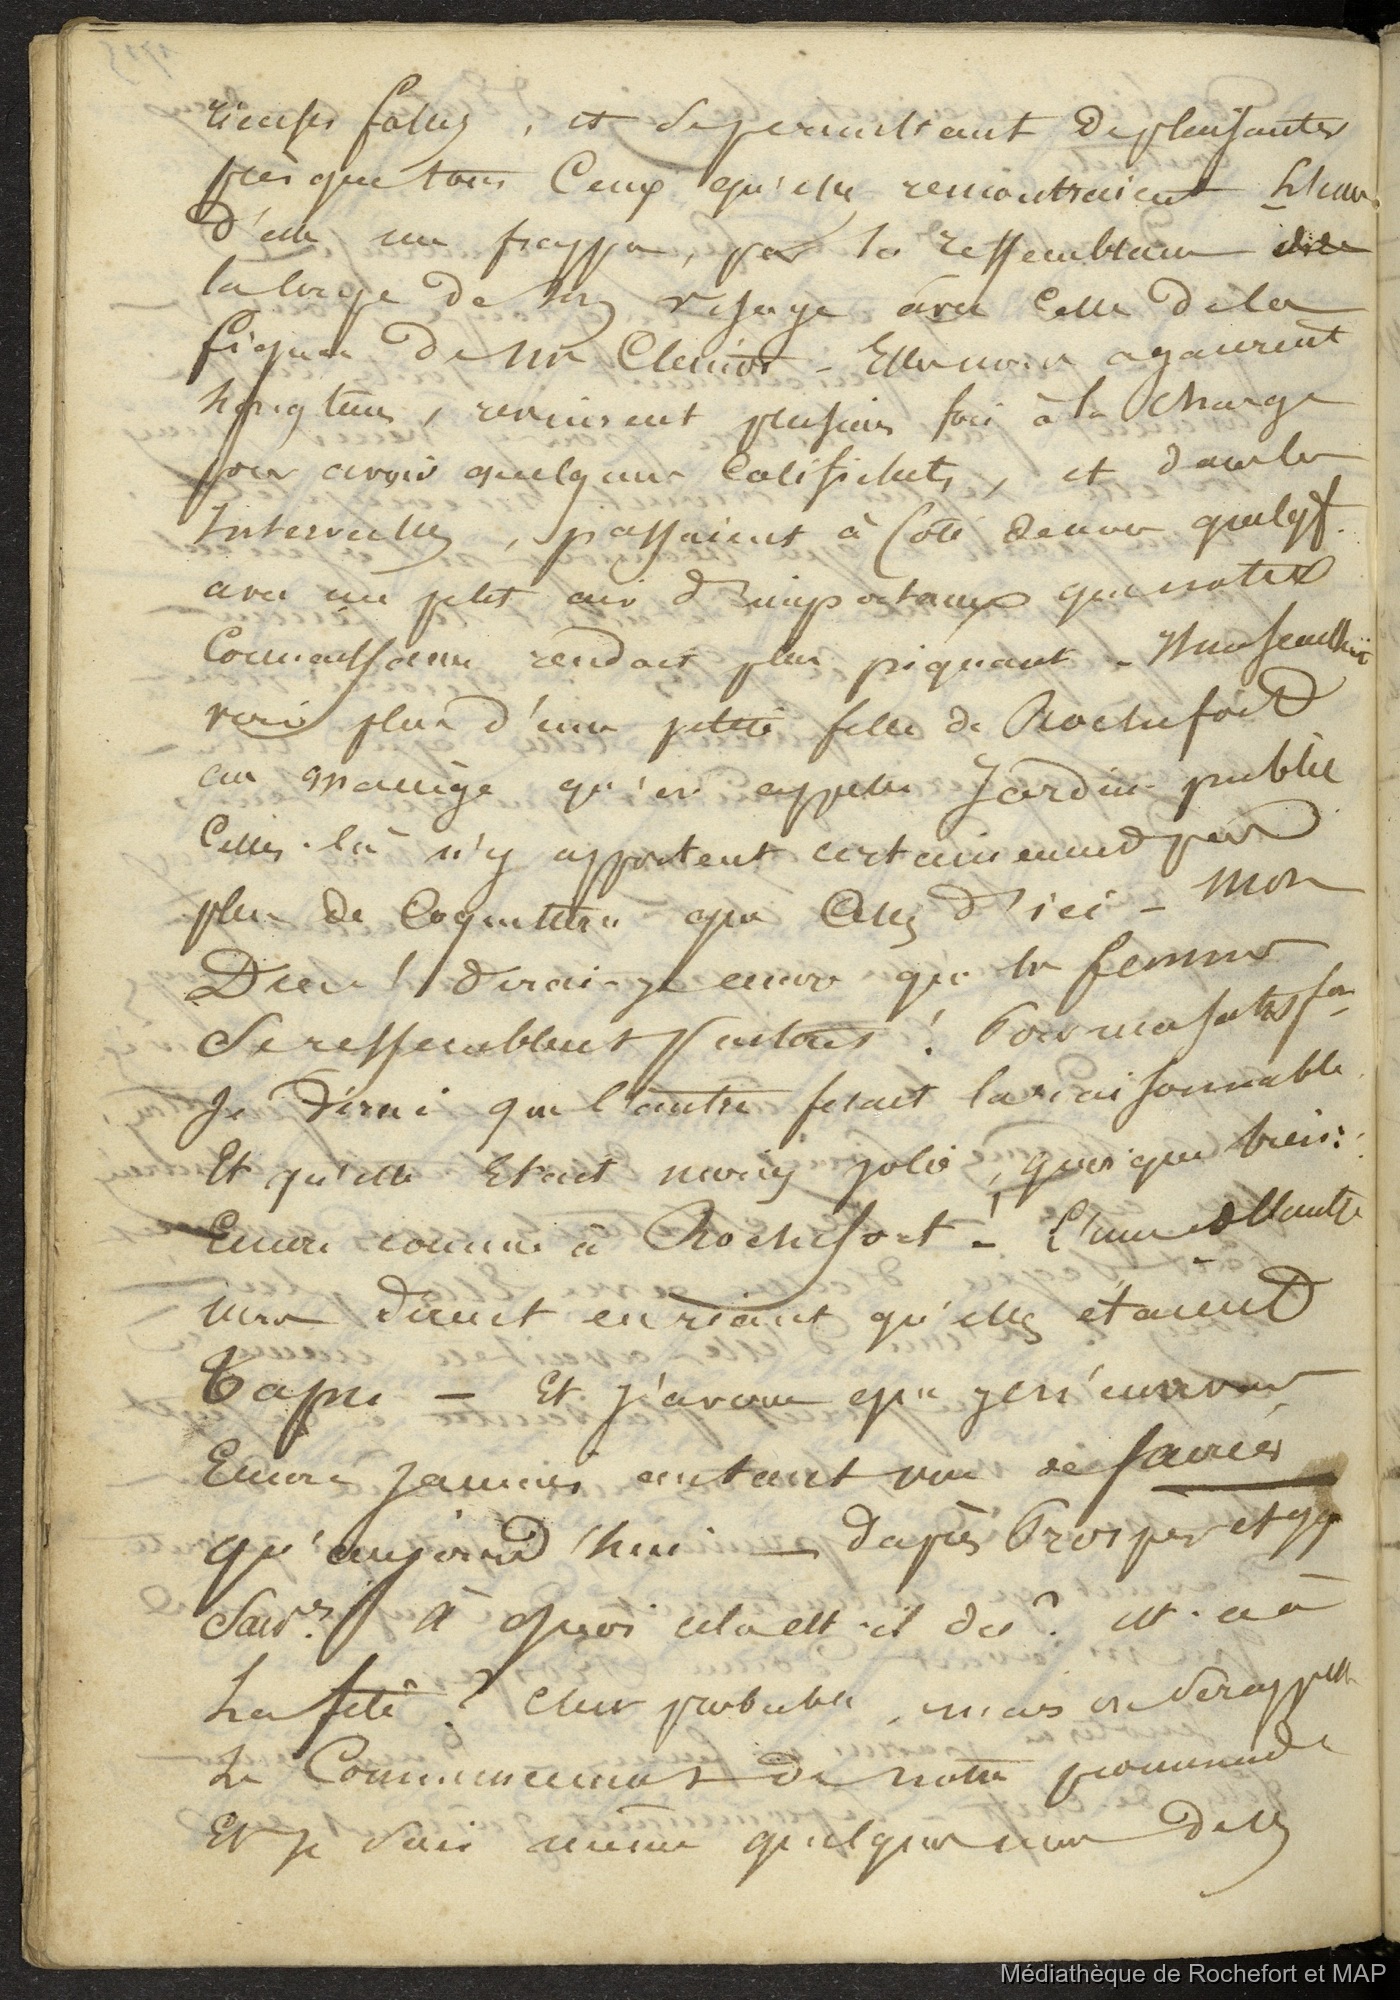 rieuses folles, et se permettant de plaisanter
presque tous Ceux qu'elles rencontraient L'une
d'elle me frappa, par la ressemblance de
la large de son visage avec Celle de la
figure de mr - Elles nous agaçerent
longtems, revinrent plusieurs fois à la Charge
pour avoir quelques Colifichets, et dans les
Intervalles, passaient à Coté de nous quelqf.
avec un petit air d'importance que notre
Connaissance rendait plus piquant -
voir plus d'une petite fille de Rochefort
au manège qu'on appelle Jardin public
Celles-là n'y apportent certainement pas
plus de Coquetterie que Celles d'ici - Mon
Dieu! dirai-je encore que les femmes
se ressemblent partout! Pour ma satisfon
Je dirai que l'autre fesait la raisonnable
Et qu'elle Etait moins jolie, quoique bien:
Encore comme à Rochefort! - L'une et L'autre
nous dirent en riant qu'elles étaient
- Et j'avoue que je n'en
Encore jamais autant vu de
qu'aujourd'hui - dapès Prosper et
Sauvr. A quoi cela est-il du? est-ce à
La fête? C'est probable, mais on se rappelle
Le Commencement de notre promenade
Et je sais même quelques unes d'elles
Médiathèque de Rochefort et MAP